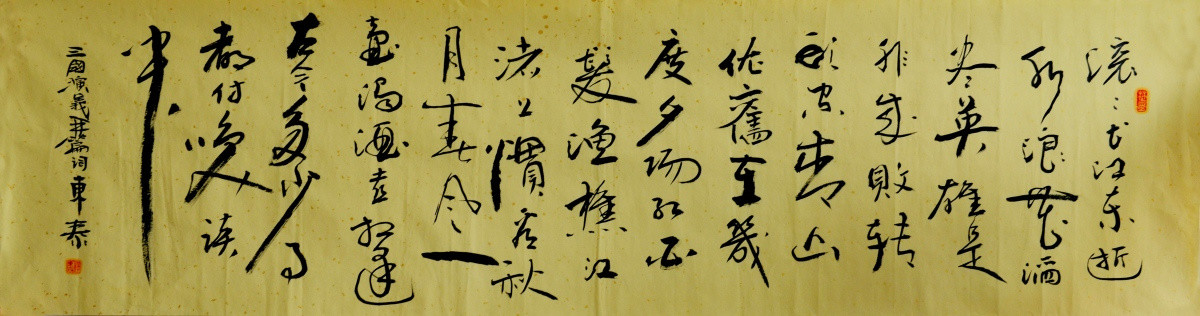 滚〻长江东逝
水浪花淘
尽英雄是
非成敗转
头空青山
依舊在幾
度夕阳红白
髮渔樵江
渚上慣看秋
月春风一
壶浊酒喜相逢
古今多少事
都付笑谈
中
三國演義开篇词車泰